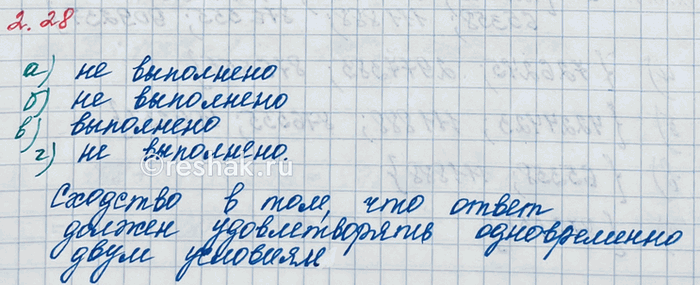 2.28
а) не выполнено
б) не выполнено
в) выполнено
г) не выполнено.
©reshak.ru
Сходство в том, что ответ
должен удовлетворять одновременно
двум условиям